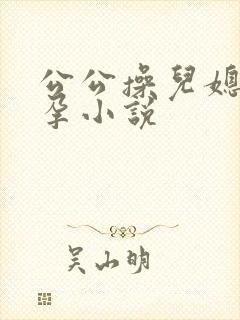 公公操兒媳
孕小說
吴山明